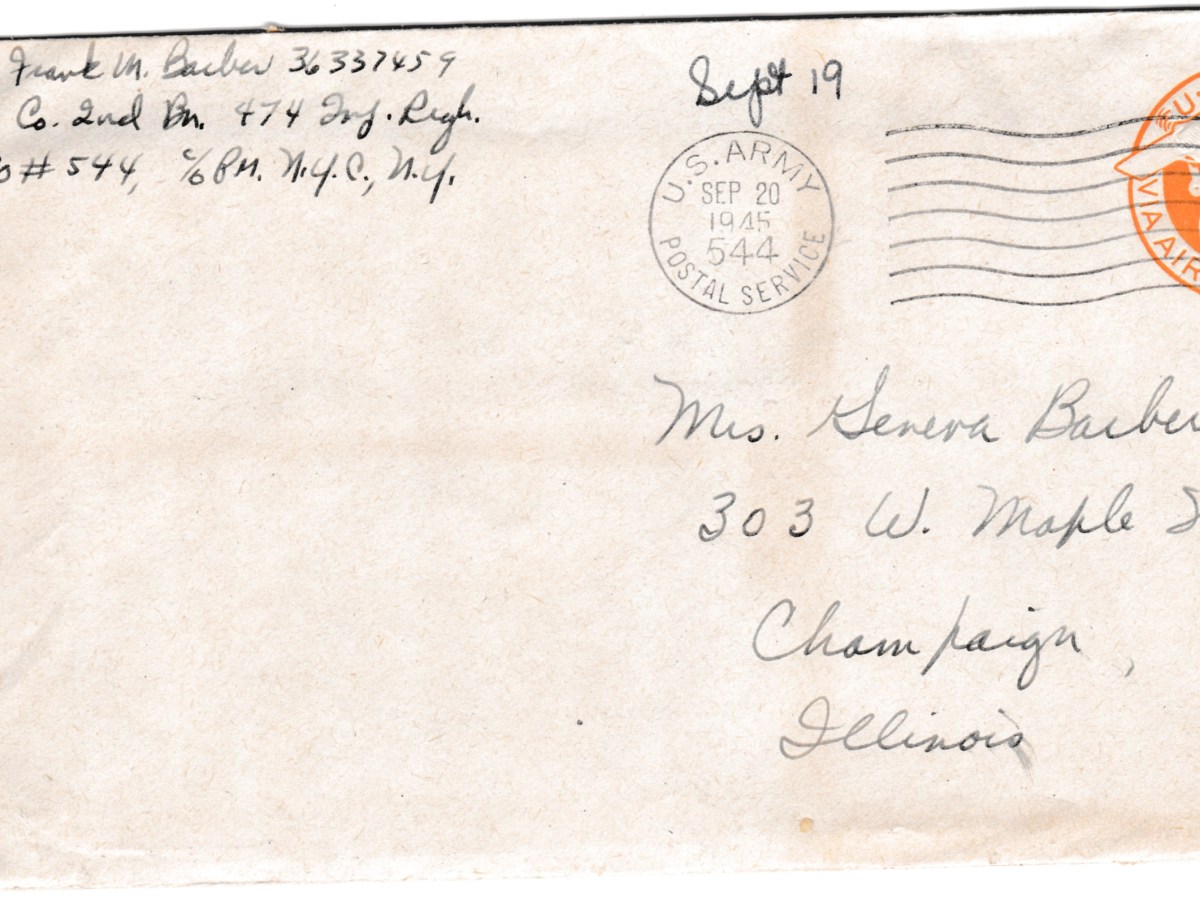 Frank M. Barber 36337459
Co. 2nd Bn. 474 Inf. Regt.
# 544, c/o P.M. N.Y.C., N.Y.
Sept 19
U.S. ARMY
SEP 20
1945
544
POSTAL SERVICE
U.S.
VIA AIR
Mrs. Geneva Barber
303 W. Maple
Champaign,
Illinois